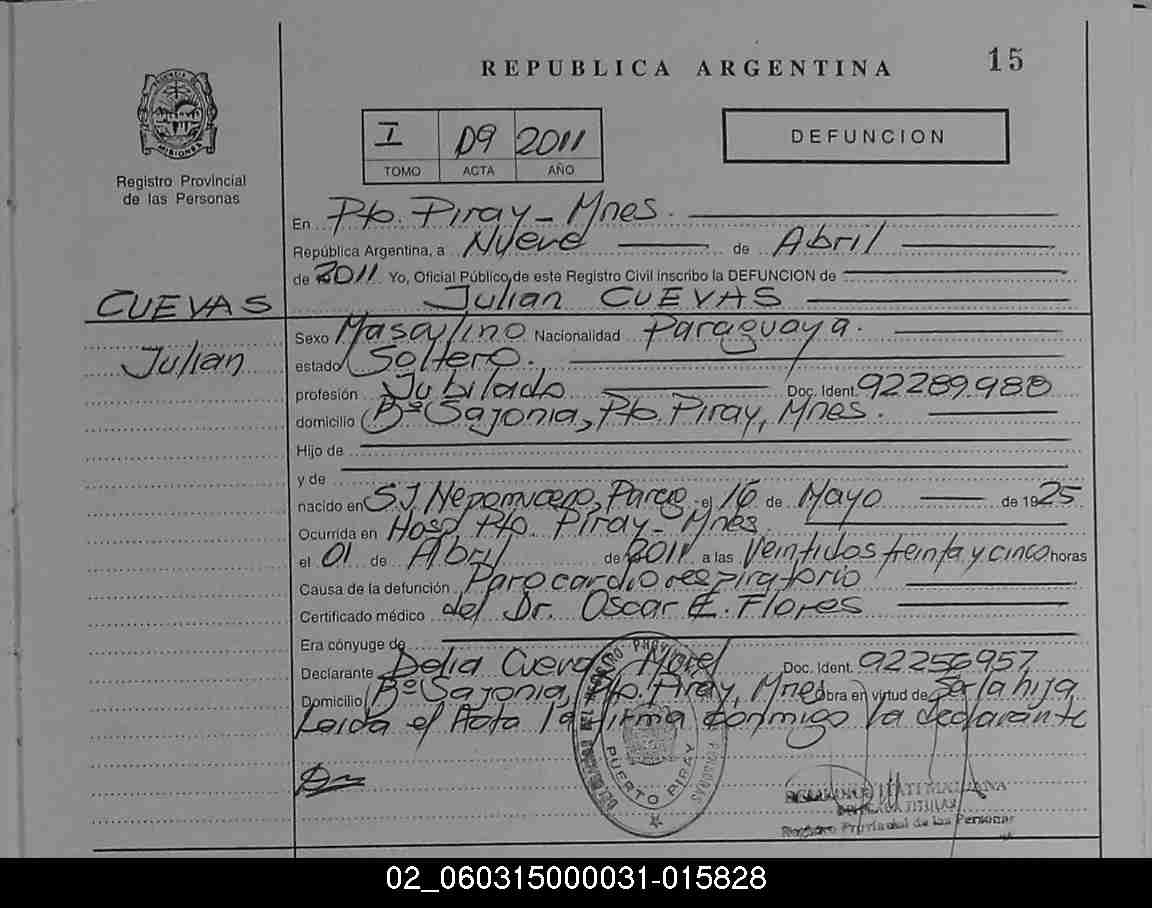 REPUBLICA ARGENTINA
15
I D9 2011
TOMO ACTA AÑO
DEFUNCION
MISIONES
Registro Provincial
de las Personas
En Pto. Piray - Mnes.
República Argentina, a Nueve de Abril
de 2011 Yo, Oficial Público de este Registro Civil inscribo la DEFUNCION de
CUEVAS
Julian CUEVAS
Julian
Sexo Masculino Nacionalidad Paraguaya.
estado Soltero.
profesión Jubilado Doc. Ident. 92289.988
domicilio Bº Sajonia, Pto. Piray, Mnes.
Hijo de
y de
nacido en S.J. Nepomuceno, el 16 de Mayo de 1925
Ocurrida en Hosp Pto. Piray - Mnes
el 01 de Abril de 2011 a las Veintidos treinta y cinco horas
Causa de la defunción Paro cardiorespiratorio
Certificado médico del Dr. Oscar E. Flores
Era cónyuge de
Declarante Delia Cuevas Morel Doc. Ident. 92256957
Domicilio Bº Sajonia, Pto. Piray, Mnes Obra en virtud de Ser la hija
Leida el Acta la firma conmigo la declarante
PUERTO PIRAY
Registro Provincial de las Personas
02_060315000031-015828